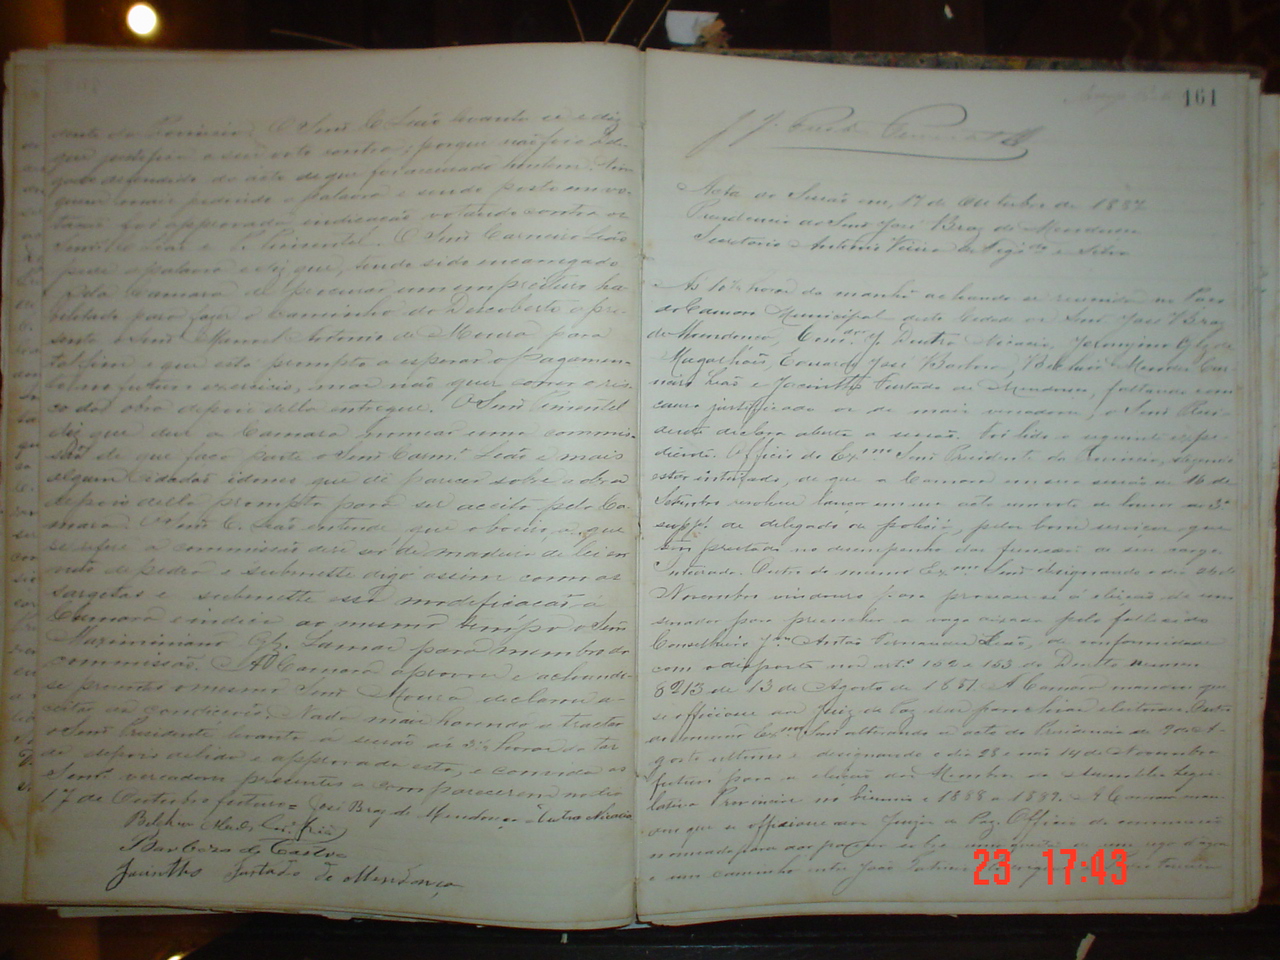 dente da Provincia. O Senr. C. Leão levanta se e diz
que justifica o seu voto contra; porque não foi o Dele-
gado defendido do acto de que foi accusado hontem. Nin-
guem mais pedindo a palavra e sendo posto em vo-
tação foi approvada indicação votando contra os
Senrs. C. Leão e P. Pimentel. O Senr. Carneiro Leão
pede a palavra e diz que, tendo sido encarregado
pela Camara de procurar um empreiteiro ha-
bilitado para fazer o Caminho do Descoberto apre-
senta o Senr. Manoel Antonio de Moura para
tal fim e que está prompto a esperar o pagamen-
to no futuro exercicio, mas não quer correr o ris-
co da obra depois della entregue. O Senr. Pimentel
diz que deve a Camara nomear uma commis-
são de que faça parte o Senr. Carnro. Leão e mais
algum Cidadão idoneo que dê parecer sobre a obra
depois della prompta para ser aceita pela Ca-
mara. O Senr. C. Leão entende que o boeiro a que
se refere a commissão deve ser de madeira de lei e
não de pedra e submette digo assim como as
sargetas e submette essa modificação á
Camara e indica ao mesmo tempo o Senr.
Maximiniano Glz. Lamas para membro da
commissão. A Camara approvou e achando-
se presente o mesmo Senr. Moura declarou a-
ceitar as condicções. Nada mais havendo a tractar
o Senr. Presidente levanta a sessão ás 3 1/2 horas da tar
de depois de lida e approvada esta, e convida os
Senrs. vereadores presentes a comparecerem no dia
17 de Outubro futuro = José Braz de Mendonça = Dutra Nicacio
Belchior Mendes Car. Leão
Barbosa de Castro
Jacintho Furtado de Mendonça
161
Acta da Sessão em 17 de Outubro de 1887
Presidencia do Senr. José Braz de Mendonça
Secretario Antonio Vieira de e Silva
As 10 1/2 horas da manhã achando se reunidos no Paço
da Camara Municipal desta Cidade os Senrs. José Braz
de Mendonça, Comdor. J. Dutra Nicacio, Jeronymo Glz. de
Magalhães, Eduardo José Barbosa, Belchior Mendes Car-
neiro Leão e Jacintho Furtado de Mendonça, faltando com
causa justificada os de mais vereadores, o Senr. Presi-
dente declara aberta a sessão. Foi lido o seguinte expe-
diente. Officio do Exmo. Senr. Presidente da Provincia,
estar inteirado, de que a Camara em sua sessão de 16 de
Setembro resolveu lançar em sua acta um voto de louvor ao 3o
suppe. de delegado de policia, pelos bons serviços que
tem prestado no desempenho das funcções de seu cargo.
Inteirada. Outro do mesmo Exmo. Senr. designando o dia
Novembro vindouro para proceder se á eleição de um
senador para preencher a vaga deixada pelo fallecido
Conselheiro Jm. Antão Fernandes Leão, de conformidade
com o disposto nos arts. 152 e 153 do Decreto numero
8213 de 13 de Agosto de 1881. A Camara mandou que
se officiasse aos Juiz de Paz das parochias eleitoraes. Outro
do mesmo Exmo. Senr. alterando o acto da Presidencia de 20 de A-
gosto ultimo e designando o dia 28 e não 14 de Novembro
futuro para a eleição dos Membros da Assemblea Legis-
lativa Provincial no biennio de 1888 a 1889. A Camara man-
dou que se officiasse aos Juizes de Paz. Officio da commissão
nomeada para dar parecer sobre uma questão de um rego d'agoa
e um caminho entre João
23 17:43